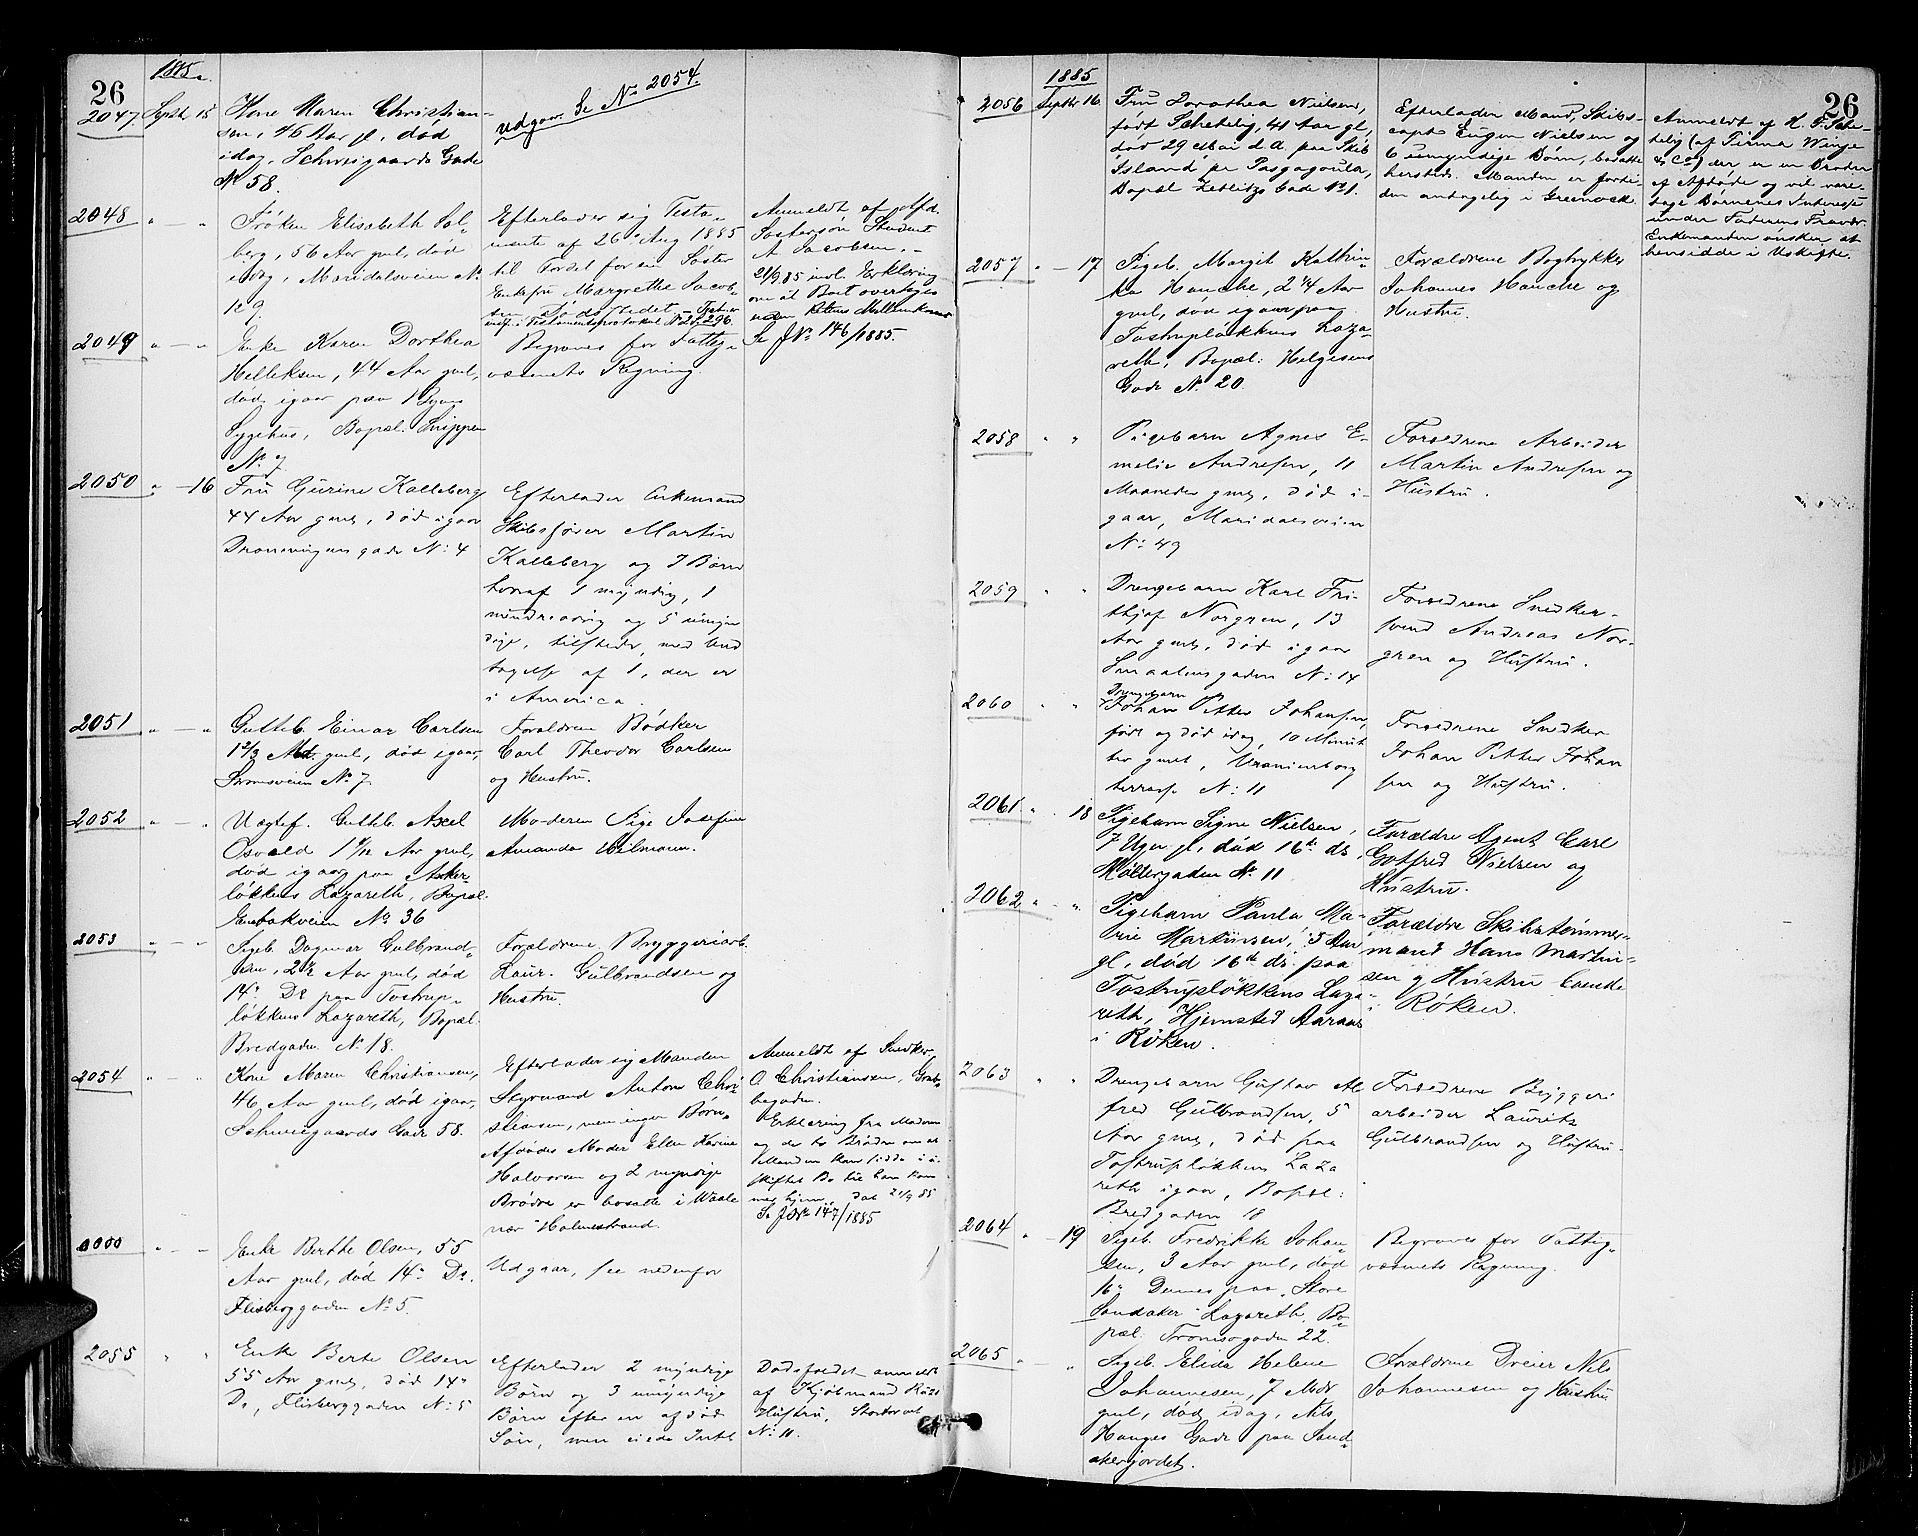 26
1885.
2047 Septbr 15
Kone Maren Christian-
sen, 46 Aar gl, død
idag, Schweigaards Gade
No 58.
udgaar. Se No 2054.
2048 " — "
Frøken Elisabeth Sol-
berg, 56 Aar gml, død
idag, Maridalsveien No
129.
Efterlader sig Testa-
mente af 26 Aug 1885
til Fordel for en Søster
Enkefru Margrethe Jacob-
sen
Anmeldt af Afd.
Søstersøn Student
A Jacobsen. -
21/9.85 indl. Erklæring
om at Boet overtages
uden Rettens Mellemkomst
Se JNo 146/1885.
2049 " — "
Enke Karen Dorthea
Helleksen, 44 Aar gml,
død igaar paa Byens
Sygehus, Bopæl: Snippen
No 7
Begraves for Fattig-
væsenets Regning.
2050 " — 16
Fru Gurine Kalleberg
44 Aar gml, død igaar
Dronningens gade No: 4
Efterlader Enkemand
Skibsfører Martin
Kalleberg og 7 Børn
hvoraf 1 myndig, 1
mindreaarig og 5 umyn
dige, tilstede, med und
tagelse af 1, der er
i America.
2051 " — "
Gutteb. Einar Carlsen
1 2/3 Md. gml, død igaar,
Strømsveien No 7
Forældrene Bødker
Carl Theodor Carlsen
og Hustru.
2052 " — "
Uægtef. Guttb. Axel
Osvald 1 Aar gml,
død igaar paa Anker-
løkkens Lazareth, Bopæl.
Enebakveien No 36
Moderen Pige Josefine
Amanda Wilmann.
2053 " — "
Pigeb. Dagmar Gulbrand-
sen, 2 1/2 Aar gml, død
14de Ds paa Tostrup-
løkkens Lazareth, Bopæl.
Bredgaden No 18.
Forældrene Bryggeriarb.
Laur. Gulbrandsen og
Hustru.
2054 " — "
Kone Maren Christiansen,
46 Aar gml, død igaar,
Schweigaards Gade 58.
Efterlader sig Manden
Styrmand Anton Chri
stiansen, men ingen Børn.
Afdødes Moder Ellen Karine
Halvorsen og 2 myndige
Brødre er bosatte i Waale
nær Holmestrand.
Anmeldt af Snedker
O Christiansen, Grub-
begaden.
Erklæring fra Moderen
og de to Brødre om at
Manden kan sidde i u-
skiftet Bo til han kom
mer hjem, dat 21/9 85
Se JNo 147/1885
" — "
Enke Berthe Olsen, 55
Aar gml, død 14de Ds.
Flisberggaden No 5.
Udgaar, se nedenfor
2055 " "
Enke Berte Olsen
55 Aar gml, død 14de
Ds, Flisberggaden No: 5
Efterlader 2 myndige
Børn og 3 umyndige
Børn efter en afdød
Søn, men eiede Intet
Dødsfaldet anmeldt
af Kjøbmand
Hustru, Stortorvet
No: 11.
26
1885
2056 Septbr 16.
Fru Dorothea Nielsen,
født Schetelig, 41 Aar gl,
død 29 Mai d. A. paa Skib
"Island" pr Pasgagoula,
Bopæl Zetlitz's Gade No 1.
Efterlader Mand, Skibs-
capt Eugen Nielsen og
6 umyndige Børn, bosatte
hersteds. Manden er forti-
den antagelig i Greenock.
Anmeldt af H. F. Sche-
telig (af Firma Winge
& Co) der er en Broder
af Afdøde og vil vare-
tage Børnenes Interesse
under Faderens Fravær.
Enkemanden ønsker at
hensidde i Uskifte.
2057 " — 17
Pigeb. Margit Kathin-
ka Hanche, 2 3/4 Aar
gml, død igaar paa
Tostrupløkkens Laza-
reth, Bopæl: Helgesens
Gade No. 20.
Forældrene Bogtrykker
Johannes Hanche og
Hustru.
2058 " "
Pigebarn Agnes E-
melie Andresen, 11
Maaneder gml, død i-
gaar, Maridalsveien
No: 49
Forældrene Arbeider
Martin Andresen og
Hustru.
2059 " "
Drengebarn Karl Fri-
thjof Norgren, 13
Aar gml, død igaar
Smaalensgaden No: 14
Forældrene Snedker-
svend Andreas Nor-
gren og Hustru.
2060 "
Drengebarn
Johan Petter Johansen,
født og død idag, 10 Minut
ter gml, Uranienborg
terrasse No: 11
Forældrene Snedker
Johan Petter Johan
sen og Hustru.
2061 " 18
Pigebarn Signe Nielsen,
7 Uger gl, død 16de ds,
Møllergaden No. 11
Forældre Agent Carl
Gotfred Nielsen og
Hustru.
2062 " — "
Pigebarn Paula Ma-
rie Martinsen, 5 Aar
gl, død 16de ds. paa
Tostrupløkkens Laza-
reth, Hjemsted Aaraas
i Røken.
Forældre Skibstømmer-
mand Hans Martin-
sen og Hustru boende
i Røken.
2063 " "
Drengebarn Gustav Al
fred Gulbrandsen, 5
Aar gml, død paa
Tostrupløkkens Laza
reth igaar, Bopæl:
Bredgaden 18
Forældrene Bryggeri
arbeider Laurits
Gulbrandsen og Hustru.
2064 " — 19
Pigeb. Fredrikke Johan-
sen, 3 Aar gml, død
16de Dennes paa "Store
Sandaker" Lazareth, Bo-
pæl: Tromsøgaden 22.
Begraves for Fattig-
væsenets Regning.
2065 " — "
Pigeb. Elida Helene
Johannesen, 7 Mdr
gml, død idag, Nils
Hauges Gade paa Sand-
akerjordet.
Forældrene Dreier Nils
Johannesen og Hustru